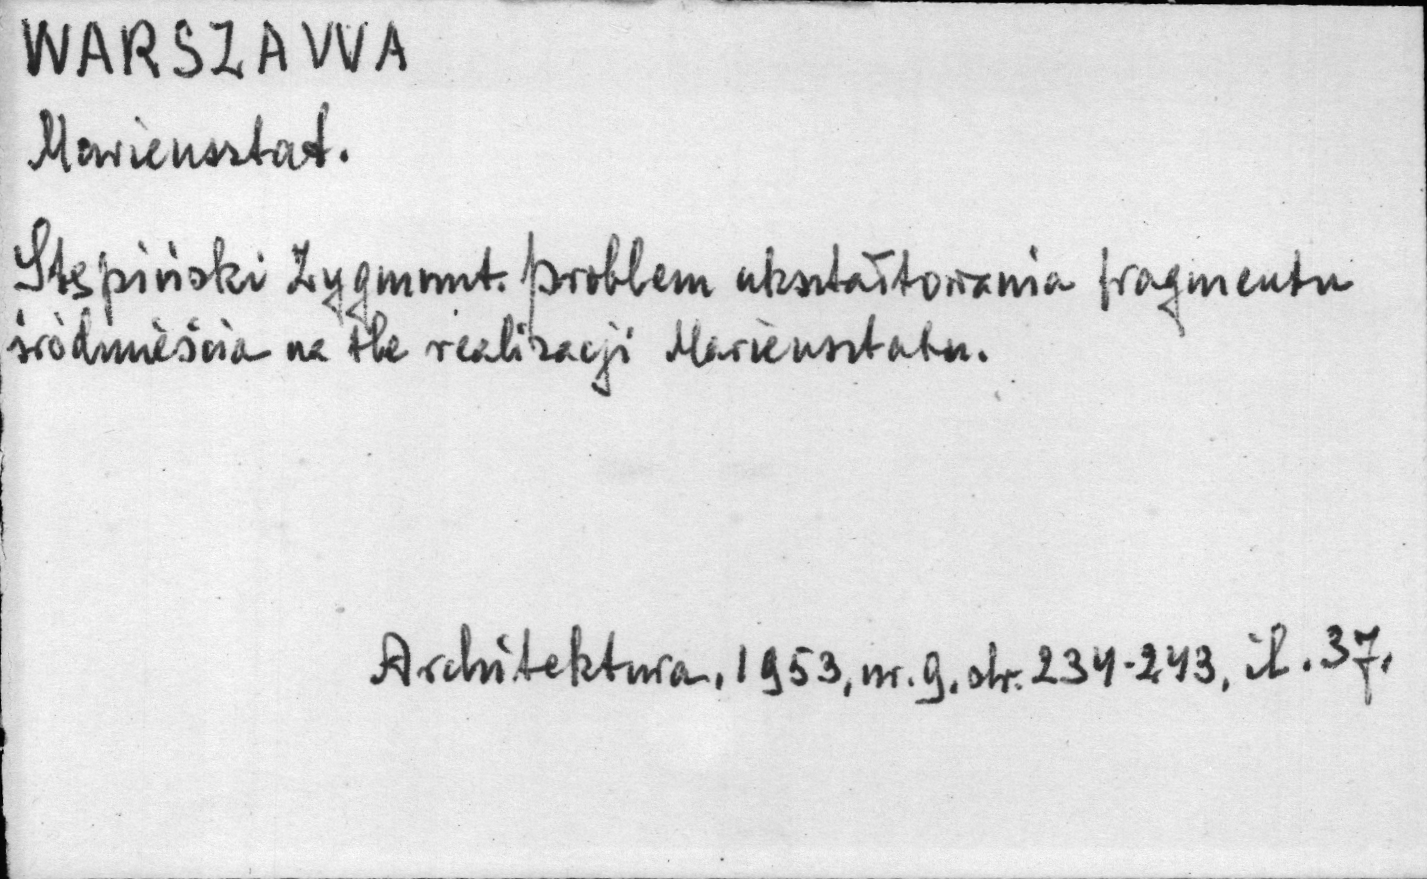 WARSZAWA
Mariensztat.
Stępiński Zygmunt. Problem ukształtowania fragmentu
śródmieścia na tle realizacji Mariensztatu.
Architektura, 1953, nr. 9, str. 234-243, il. 37.